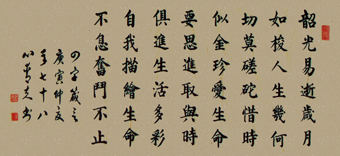 韶光易逝歲月
如梭人生幾何
切莫磋砣惜時
似金珍愛生命
要思進取與時
俱進生活多彩
自我描繪生命
不息奮鬥不止
四字箴言
庚寅仲夏
年七十八